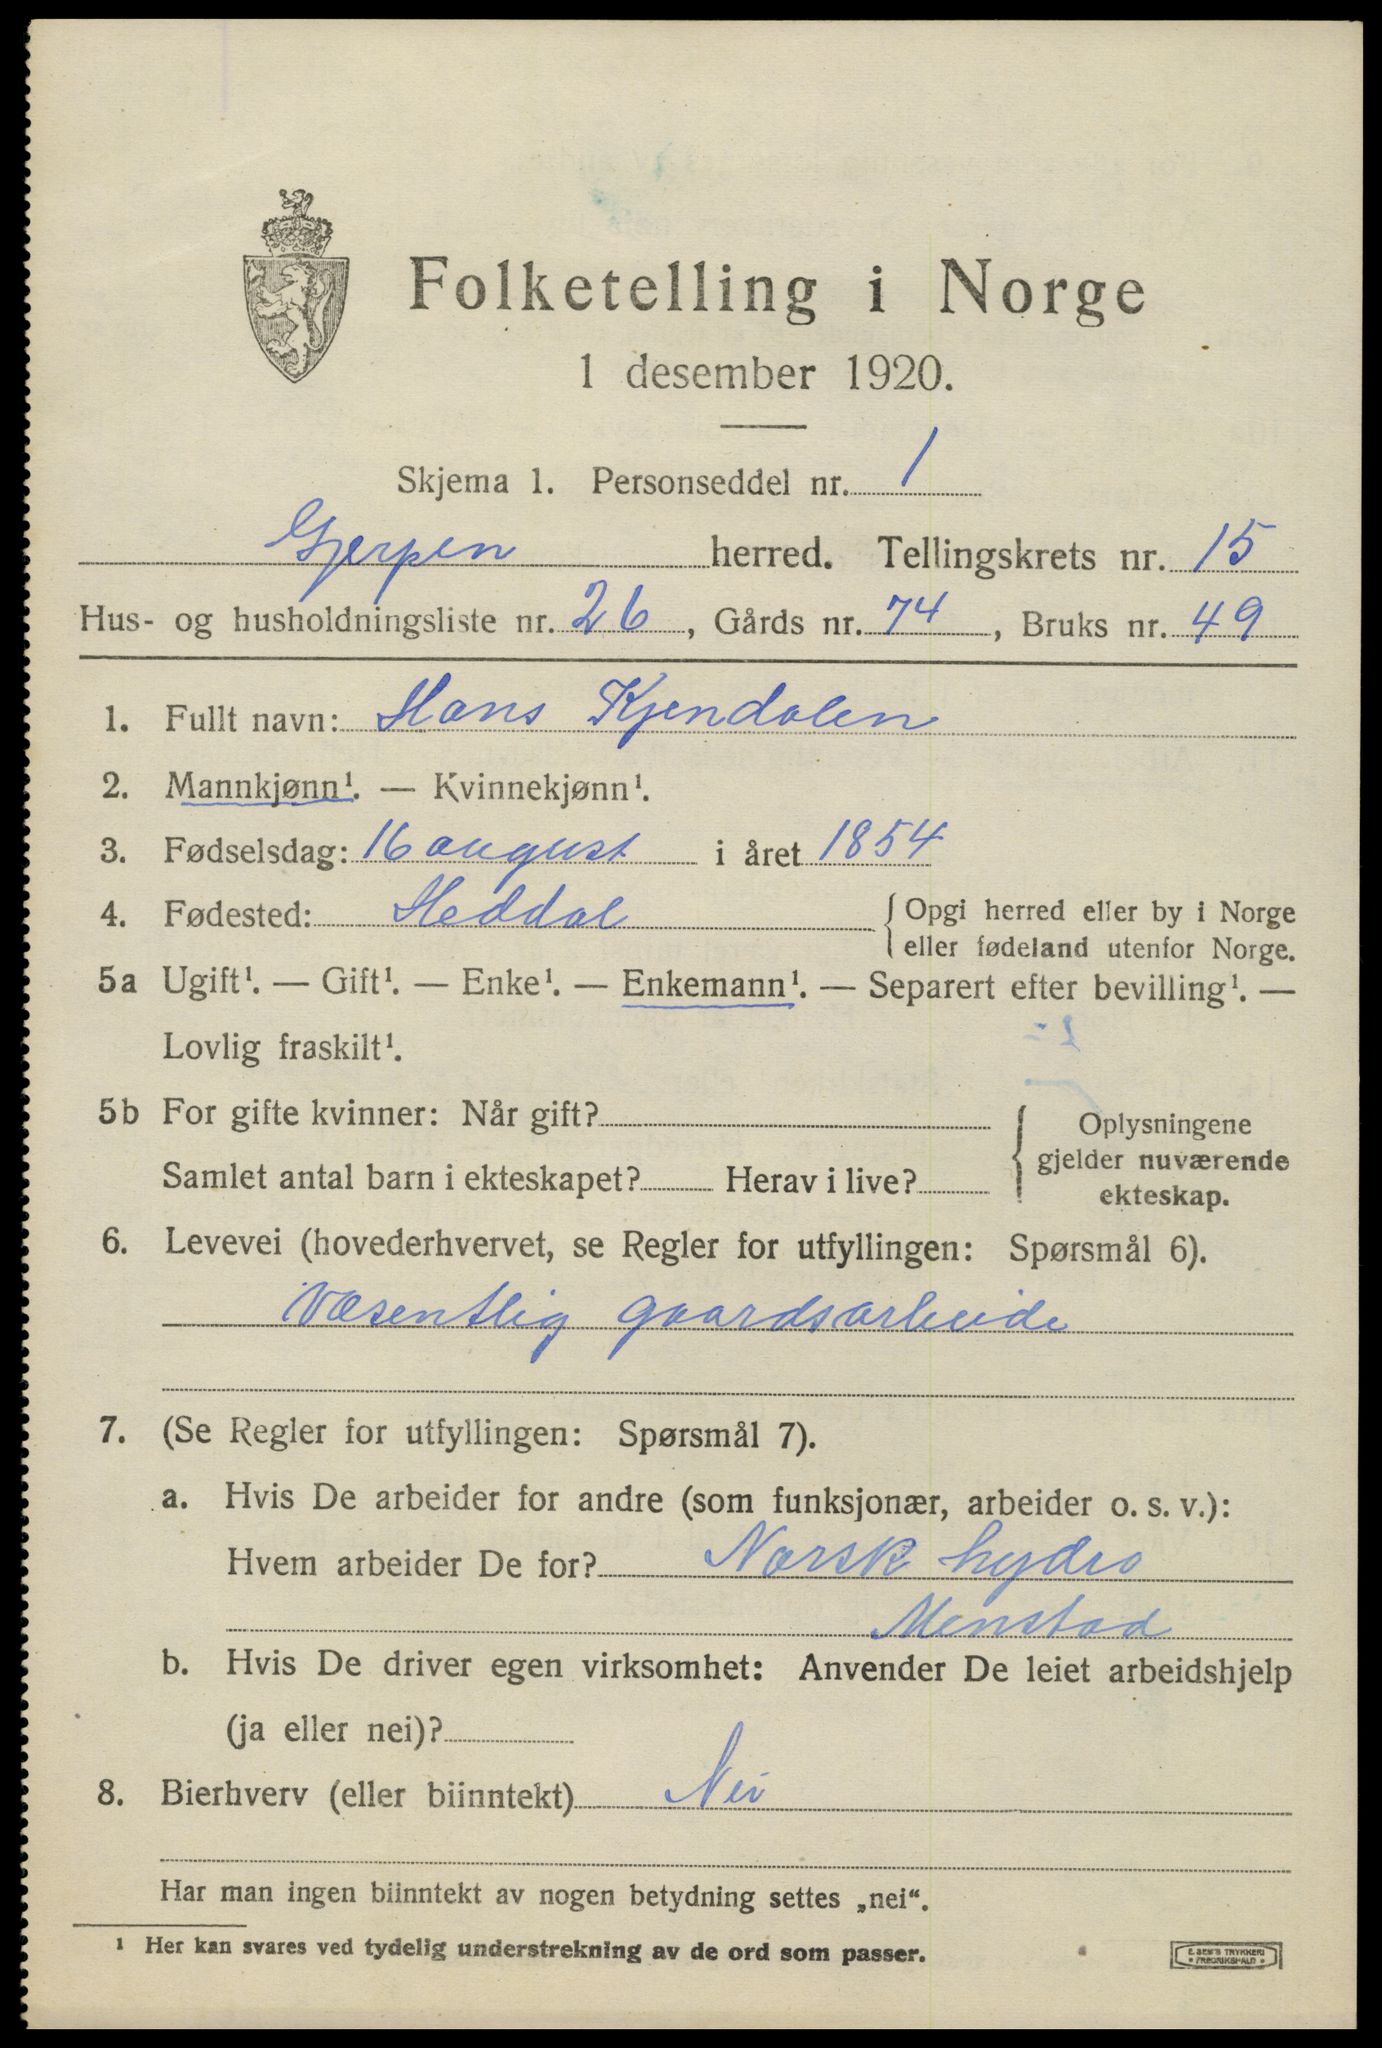 Folketelling i Norge
1 desember 1920.
Skjema 1. Personseddel nr. 1
Gjerpen herred. Tellingskrets nr. 15
Hus- og husholdningsliste nr. 26, Gårds nr. 74, Bruks nr. 49
1. Fullt navn: Hans Kjendalen
2. Mannkjønn¹. — Kvinnekjønn¹.
3. Fødselsdag: 16 august i året 1854
4. Fødested: Heddal { Opgi herred eller by i Norge
eller fødeland utenfor Norge.
5a Ugift¹. — Gift¹. — Enke¹. — Enkemann¹. — Separert efter bevilling¹. —
Lovlig fraskilt¹.
5b For gifte kvinner: Når gift?
Samlet antal barn i ekteskapet? Herav i live?
Oplysningene
gjelder nuværende
ekteskap.
6. Levevei (hovederhvervet, se Regler for utfyllingen: Spørsmål 6).
Væsentlig gaardsarbeide
7. (Se Regler for utfyllingen: Spørsmål 7).
a. Hvis De arbeider for andre (som funksjonær, arbeider o. s. v.):
Hvem arbeider De for? Norsk hydro
Menstad
b. Hvis De driver egen virksomhet: Anvender De leiet arbeidshjelp
(ja eller nei)?
8. Bierhverv (eller biinntekt) Nei
Har man ingen biinntekt av nogen betydning settes „nei“.
¹ Her kan svares ved tydelig understrekning av de ord som passer.
E. SEM'S TRYKKERI
• FREDRIKSHALD •